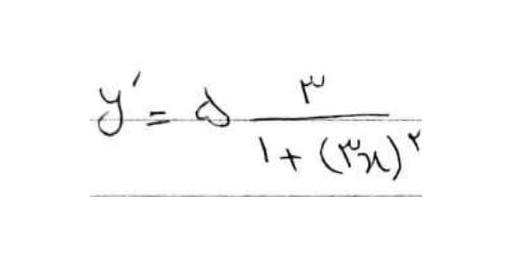 y' = ۵ ۳ / (۱ + (۳x)^۲)